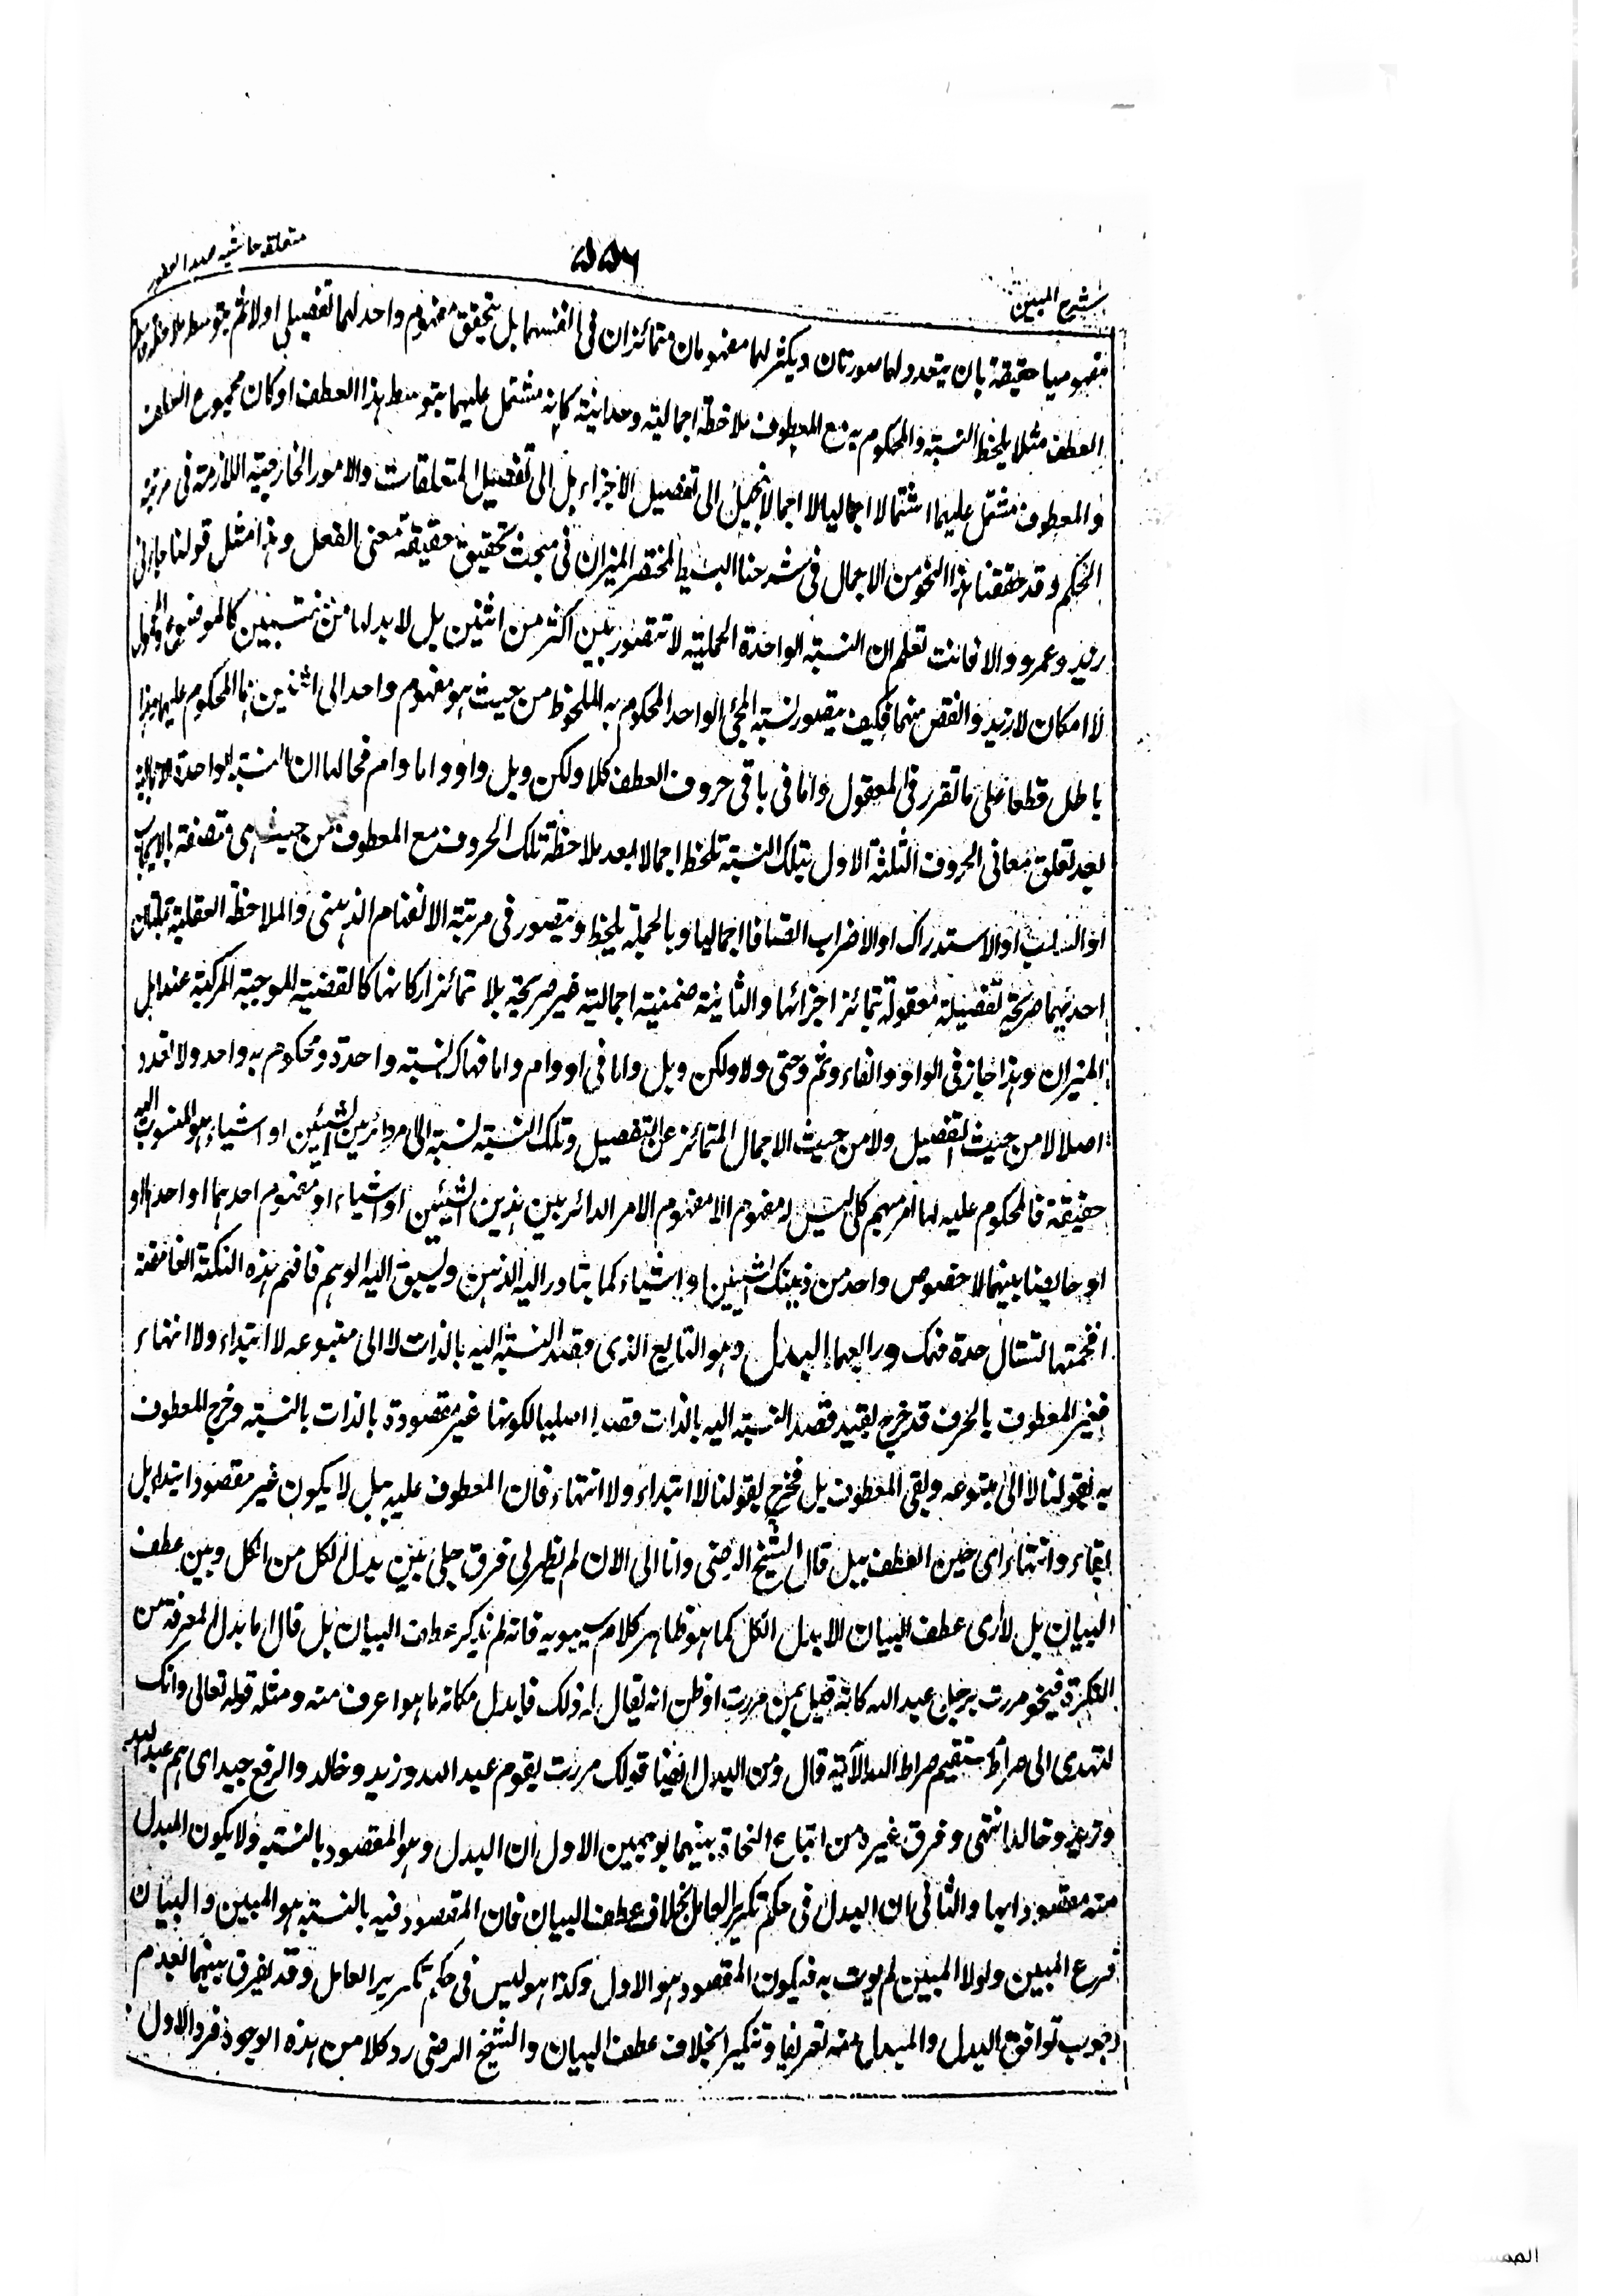 شرح المبين
متعلقه حاشيه
مفهوميا حقيقة بان يتعدد لها صورتان ويكثر لها مفهومان متمائزان فى انفسهما بل يتحقق مفهوم واحد لهما تفصيلى اولا ثم بتوسط ملاحظة
العطف مثلا يلحظ النسبة والمحكوم به مع المعطوف ملاحظة اجمالية وحدانية كانه مشتمل عليهما بتوسط هذا العطف او كان مجموع العطف
والمعطوف مشتمل عليهما اشتمالا اجماليا لا اجمالا ينحل الى تفصيل الاجزاء بل الى تفصيل المتعلقات والامور الخارجية اللازمة فى مرتبة
الحكم وقد حققنا هذا النحو من الاجمال فى شرحنا البسيط لمختصر الميزان فى مبحث تحقيق حقيقة معنى الفعل وهذا مثل قولنا جاءنى
زيد وعمرو والا فانت تعلم ان النسبة الواحدة الحملية لا تتصور بين اكثر من اثنين بل لا بد لها من منتسبين كالموضوع والمحمول
لا امكان لازيد وانقص منهما فكيف يتصور نسبة المجئ الواحد المحكوم به الملحوظ من حيث هو مفهوم واحد الى اثنين هما المحكوم عليهما هذا
باطل قطعا على ما تقرر فى المعقول واما فى باقى حروف العطف كلا ولكن وبل واو واما وام فحالها ان النسبة الواحدة الاجمالية
بعد تعلق معانى الحروف الثلثة الاول بتلك النسبة تلحظ اجمالا بعد ملاحظة تلك الحروف مع المعطوف من حيث هى متصفة بالايجاب
او السلب او الاستدراك او الاضراب اتصافا اجماليا وبالجملة يلحظ ويتصور فى مرتبة الانضمام الذهنى والملاحظة العقلية
احديهما صريحة تفصيلة معقولة بتمائز اجزائها والثانية ضمنية اجمالية غير صريحة بلا تمائز اركانها كالقضية الموجبة المركبة عند اهل
الميزان وهذا جاز فى الواو والفاء وثم وحتى ولا ولكن وبل واما فى او وام واما فهناك نسبة واحدة ومحكوم به واحد ولا تعدد
اصلا لا من حيث التفصيل ولا من حيث الاجمال المتمائز عن التفصيل وتلك النسبة نسبة الى امر دائر بين الشيئين او اشياء هو المنسوب اليه
حقيقة فالمحكوم عليه لها امر مبهم كلى ليس له مفهوم الا مفهوم الامر الدائر بين هذين الشيئين او اشياء او مفهوم احدهما او احدها او
او خالصنا بينهما لا خصوص واحد من ذينك الشيئين او اشياء كما يتبادر اليه الذهن ويسبق اليه الوهم فافهم هذه النكتة الغامضة
حدة فهمك ورابعها البدل وهو التابع الذى قصد النسبة اليه بالذات لا الى متبوعه لا ابتداء ولا انتهاء
فغير المعطوف بالحرف قد خرج بقيد قصد النسبة اليه بالذات قصدا اصليا لكونها غير مقصودة بالذات بالنسبة وخرج المعطوف
به بقولنا لا الى متبوعه وبقى المعطوف ببل فخرج بقولنا لا ابتداء ولا انتهاء فان المعطوف عليه ببل لا يكون غير مقصود ابتداء بل
بقاء وانتهاء اى حين العطف ببل قال الشيخ الرضى وانا الى الان لم يظهر لى فرق جلى بين بدل الكل من الكل وبين عطف
البيان بل لا ارى عطف البيان الا بدل الكل كما هو ظاهر كلام سيبويه فانه لم يذكر عطف البيان بل قال اما بدل المعرفة من
النكرة فنحو مررت برجل عبد الله كانه قيل بمن مررت او ظن انه يقال له ذلك فابدل مكانه ما هو اعرف منه ومثله قوله تعالى وانك
لتهدى الى صراط مستقيم صراط الله الآية قال ومن البدل ايضا قولك مررت بقوم عبد الله وزيد وخالد والرفع جيد اى هم عبد الله
وزيد وخالد انتهى وفرق غيره من اتباع النحاة بينهما بوجهين الاول ان البدل وهو المقصود بالنسبة ولا يكون المبدل
منه مقصودا بها والثانى ان البدل فى حكم تكرير العامل بخلاف عطف البيان فان المقصود فيه بالنسبة هو المبين والبيان
فرع المبين ولولا المبين لم يوت به فيكون المقصود هو الاول وكذا هو ليس فى حكم تكرير العامل وقد يفرق بينهما بعدم
وجوب توافق البدل والمبدل منه تعريفا وتنكيرا بخلاف عطف البيان والشيخ الرضى رد كلا من هذه الوجوه فرد الاول